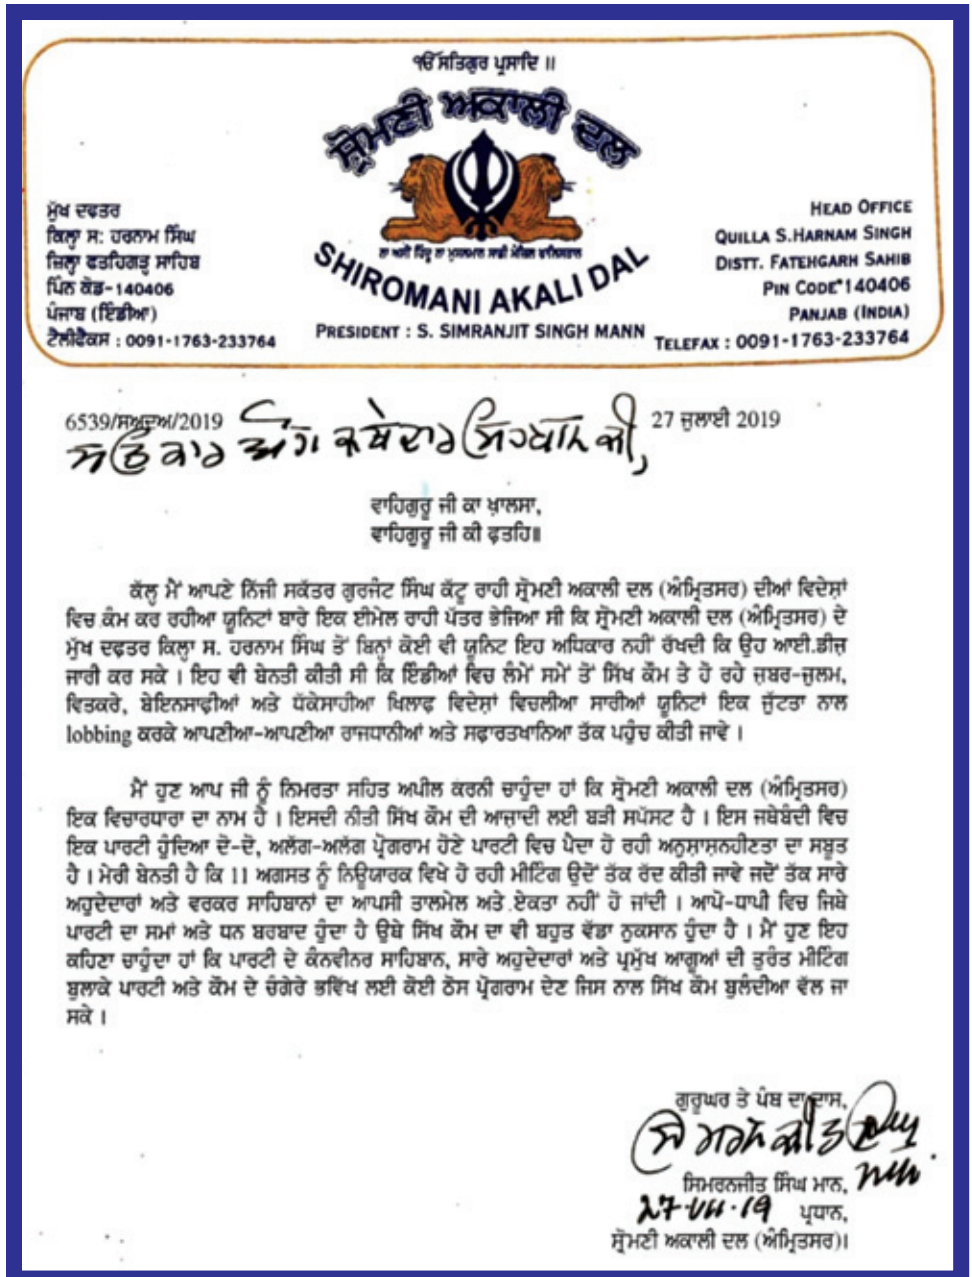 ੴ ਸਤਿਗੁਰ ਪ੍ਰਸਾਦਿ ॥
ਸ਼੍ਰੋਮਣੀ ਅਕਾਲੀ ਦਲ
SHIROMANI AKALI DAL
PRESIDENT : S. SIMRANJIT SINGH MANN
ਮੁੱਖ ਦਫਤਰ
ਕਿਲ੍ਹਾ ਸ: ਹਰਨਾਮ ਸਿੰਘ
ਜ਼ਿਲ੍ਹਾ ਫਤਹਿਗੜ੍ਹ ਸਾਹਿਬ
ਪਿੰਨ ਕੋਡ-140406
ਪੰਜਾਬ (ਇੰਡੀਆ)
ਟੈਲੀਫੈਕਸ : 0091-1763-233764
HEAD OFFICE
QUILLA S.HARNAM SINGH
DISTT. FATEHGARH SAHIB
PIN CODE 140406
PANJAB (INDIA)
TELEFAX : 0091-1763-233764
6539/ਸਅਦਅ/2019
27 ਜੁਲਾਈ 2019
ਵਾਹਿਗੁਰੂ ਜੀ ਕਾ ਖ਼ਾਲਸਾ,
ਵਾਹਿਗੁਰੂ ਜੀ ਕੀ ਫ਼ਤਹਿ॥
ਕੱਲ੍ਹ ਮੈਂ ਆਪਣੇ ਨਿੱਜੀ ਸਕੱਤਰ ਗੁਰਜੰਟ ਸਿੰਘ ਕੱਟੂ ਰਾਹੀ ਸ਼੍ਰੋਮਣੀ ਅਕਾਲੀ ਦਲ (ਅੰਮ੍ਰਿਤਸਰ) ਦੀਆਂ ਵਿਦੇਸ਼ਾਂ
ਵਿਚ ਕੰਮ ਕਰ ਰਹੀਆ ਯੂਨਿਟਾਂ ਬਾਰੇ ਇਕ ਈਮੇਲ ਰਾਹੀ ਪੱਤਰ ਭੇਜਿਆ ਸੀ ਕਿ ਸ਼੍ਰੋਮਣੀ ਅਕਾਲੀ ਦਲ (ਅੰਮ੍ਰਿਤਸਰ) ਦੇ
ਮੁੱਖ ਦਫਤਰ ਕਿਲ੍ਹਾ ਸ. ਹਰਨਾਮ ਸਿੰਘ ਤੋਂ ਬਿਨ੍ਹਾਂ ਕੋਈ ਵੀ ਯੂਨਿਟ ਇਹ ਅਧਿਕਾਰ ਨਹੀਂ ਰੱਖਦੀ ਕਿ ਉਹ ਆਈ.ਡੀਜ਼
ਜਾਰੀ ਕਰ ਸਕੇ । ਇਹ ਵੀ ਬੇਨਤੀ ਕੀਤੀ ਸੀ ਕਿ ਇੰਡੀਆਂ ਵਿਚ ਲੰਮੇਂ ਸਮੇਂ ਤੋਂ ਸਿੱਖ ਕੌਮ ਤੇ ਹੋ ਰਹੇ ਜ਼ਬਰ-ਜੁਲਮ,
ਵਿਤਕਰੇ, ਬੇਇਨਸਾਫ਼ੀਆਂ ਅਤੇ ਧੱਕੇਸਾਹੀਆ ਖਿਲਾਫ਼ ਵਿਦੇਸ਼ਾਂ ਵਿਚਲੀਆ ਸਾਰੀਆਂ ਯੂਨਿਟਾਂ ਇਕ ਜੁੱਟਤਾ ਨਾਲ
lobbing ਕਰਕੇ ਆਪਣੀਆ-ਆਪਣੀਆ ਰਾਜਧਾਨੀਆਂ ਅਤੇ ਸਫ਼ਾਰਤਖਾਨਿਆ ਤੱਕ ਪਹੁੰਚ ਕੀਤੀ ਜਾਵੇ ।
ਮੈਂ ਹੁਣ ਆਪ ਜੀ ਨੂੰ ਨਿਮਰਤਾ ਸਹਿਤ ਅਪੀਲ ਕਰਨੀ ਚਾਹੁੰਦਾ ਹਾਂ ਕਿ ਸ਼੍ਰੋਮਣੀ ਅਕਾਲੀ ਦਲ (ਅੰਮ੍ਰਿਤਸਰ)
ਇਕ ਵਿਚਾਰਧਾਰਾ ਦਾ ਨਾਮ ਹੈ । ਇਸਦੀ ਨੀਤੀ ਸਿੱਖ ਕੌਮ ਦੀ ਆਜ਼ਾਦੀ ਲਈ ਬੜੀ ਸਪੱਸਟ ਹੈ । ਇਸ ਜਥੇਬੰਦੀ ਵਿਚ
ਇਕ ਪਾਰਟੀ ਹੁੰਦਿਆ ਦੋ-ਦੋ, ਅਲੱਗ-ਅਲੱਗ ਪ੍ਰੋਗਰਾਮ ਹੋਣੇ ਪਾਰਟੀ ਵਿਚ ਪੈਦਾ ਹੋ ਰਹੀ ਅਨੁਸ਼ਾਸ਼ਨਹੀਣਤਾ ਦਾ ਸਬੂਤ
ਹੈ । ਮੇਰੀ ਬੇਨਤੀ ਹੈ ਕਿ 11 ਅਗਸਤ ਨੂੰ ਨਿਊਯਾਰਕ ਵਿਖੇ ਹੋ ਰਹੀ ਮੀਟਿੰਗ ਉਦੋਂ ਤੱਕ ਰੱਦ ਕੀਤੀ ਜਾਵੇ ਜਦੋਂ ਤੱਕ ਸਾਰੇ
ਅਹੁਦੇਦਾਰਾਂ ਅਤੇ ਵਰਕਰ ਸਾਹਿਬਾਨਾਂ ਦਾ ਆਪਸੀ ਤਾਲਮੇਲ ਅਤੇ ਏਕਤਾ ਨਹੀਂ ਹੋ ਜਾਂਦੀ । ਆਪੋ-ਧਾਪੀ ਵਿਚ ਜਿਥੇ
ਪਾਰਟੀ ਦਾ ਸਮਾਂ ਅਤੇ ਧਨ ਬਰਬਾਦ ਹੁੰਦਾ ਹੈ ਉਥੇ ਸਿੱਖ ਕੌਮ ਦਾ ਵੀ ਬਹੁਤ ਵੱਡਾ ਨੁਕਸਾਨ ਹੁੰਦਾ ਹੈ । ਮੈਂ ਹੁਣ ਇਹ
ਕਹਿਣਾ ਚਾਹੁੰਦਾ ਹਾਂ ਕਿ ਪਾਰਟੀ ਦੇ ਕੰਨਵੀਨਰ ਸਾਹਿਬਾਨ, ਸਾਰੇ ਅਹੁਦੇਦਾਰਾਂ ਅਤੇ ਪ੍ਰਮੁੱਖ ਆਗੂਆਂ ਦੀ ਤੁਰੰਤ ਮੀਟਿੰਗ
ਬੁਲਾਕੇ ਪਾਰਟੀ ਅਤੇ ਕੌਮ ਦੇ ਚੰਗੇਰੇ ਭਵਿੱਖ ਲਈ ਕੋਈ ਠੋਸ ਪ੍ਰੋਗਰਾਮ ਦੇਣ ਜਿਸ ਨਾਲ ਸਿੱਖ ਕੌਮ ਬੁਲੰਦੀਆ ਵੱਲ ਜਾ
ਸਕੇ ।
ਗੁਰੂਘਰ ਤੇ ਪੰਥ ਦਾ ਦਾਸ,
ਸਿਮਰਨਜੀਤ ਸਿੰਘ ਮਾਨ,
27·VII·19 ਪ੍ਰਧਾਨ,
ਸ਼੍ਰੋਮਣੀ ਅਕਾਲੀ ਦਲ (ਅੰਮ੍ਰਿਤਸਰ)।